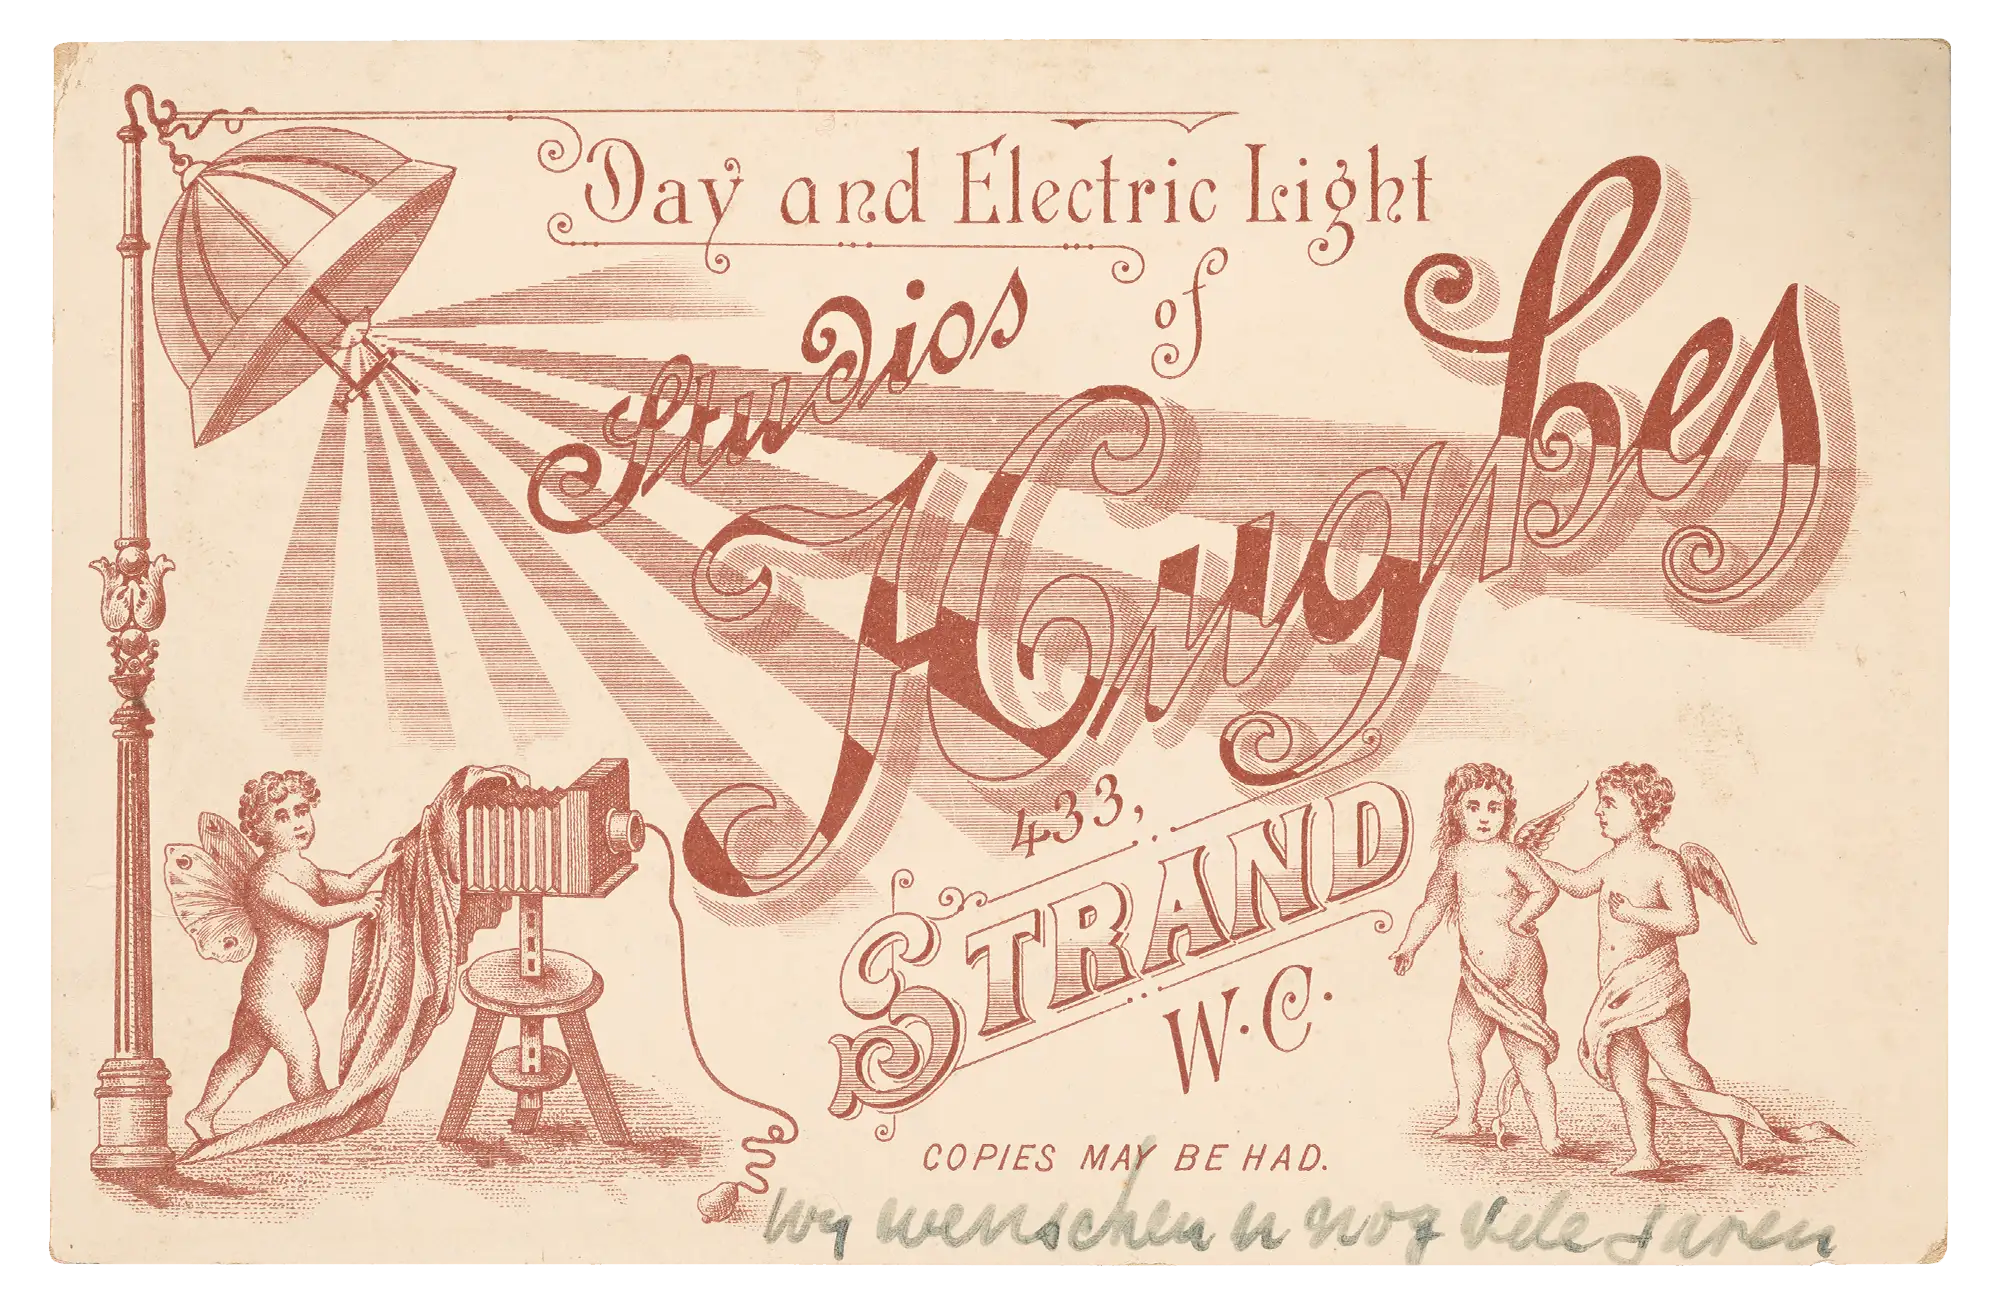 Day and Electric Light
Studios of
Hughes
433,
STRAND
W.C.
COPIES MAY BE HAD.
Wy wenschen u nog vele jaren